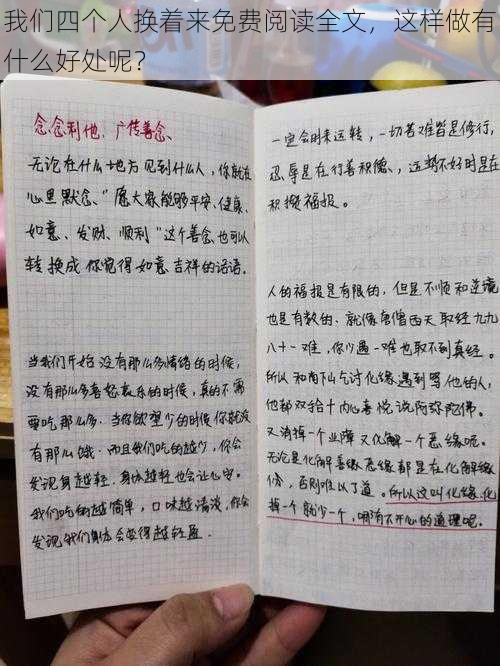 我们四个人换着来免费阅读全文，这样做有
什么好处呢？
念念利他，广传善念、
无论在什么地方见到什么人，你就在
心里默念、"愿大家能够平安、健康、
如意、发财、顺利"这个善念也可以
转换成你觉得如意吉祥的话语.
当我们开始没有那么多情绪的时候，
没有那么多喜好乐的时候，真的不需
要吃那么多.当你欲望少的时候你就没
有那么饿.而且我们吃的越少，你会
发现身越轻.身体越轻也会让心安.
我们吃的越简单，口味越清淡，你会
发现我们身体会变得越轻盈.
一定会时来运转，一切苦难皆是修行，
忍辱是在行善积德、，运势不好时是在
积攒福报。
人的福报是有限的，但是不顺和逆境
也是有数的.就像唐僧西天取经九九
八十一难，你少遇一难也取不到真经。
所以和尚下山乞讨化缘遇到骂他的人，
他都双手合十内心喜悦说阿弥陀佛。
又消掉一个业障又化解一个恶缘呢。
无论是化解善缘恶缘都是在化解缘
，否则难以了道。所以这叫化缘，化
掉一个就少一个，哪有不开心的道理呢。